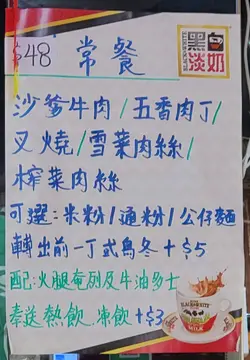 $48 常餐
黑白淡奶
沙爹牛肉/五香肉丁/
叉燒/雪菜肉絲/
榨菜肉絲
可選：米粉/通粉/公仔麵
轉出前一丁或烏冬+$5
配：火腿奄列及牛油多士
奉送熱飲. 凍飲+$3
BLACK&WHITE
MILK